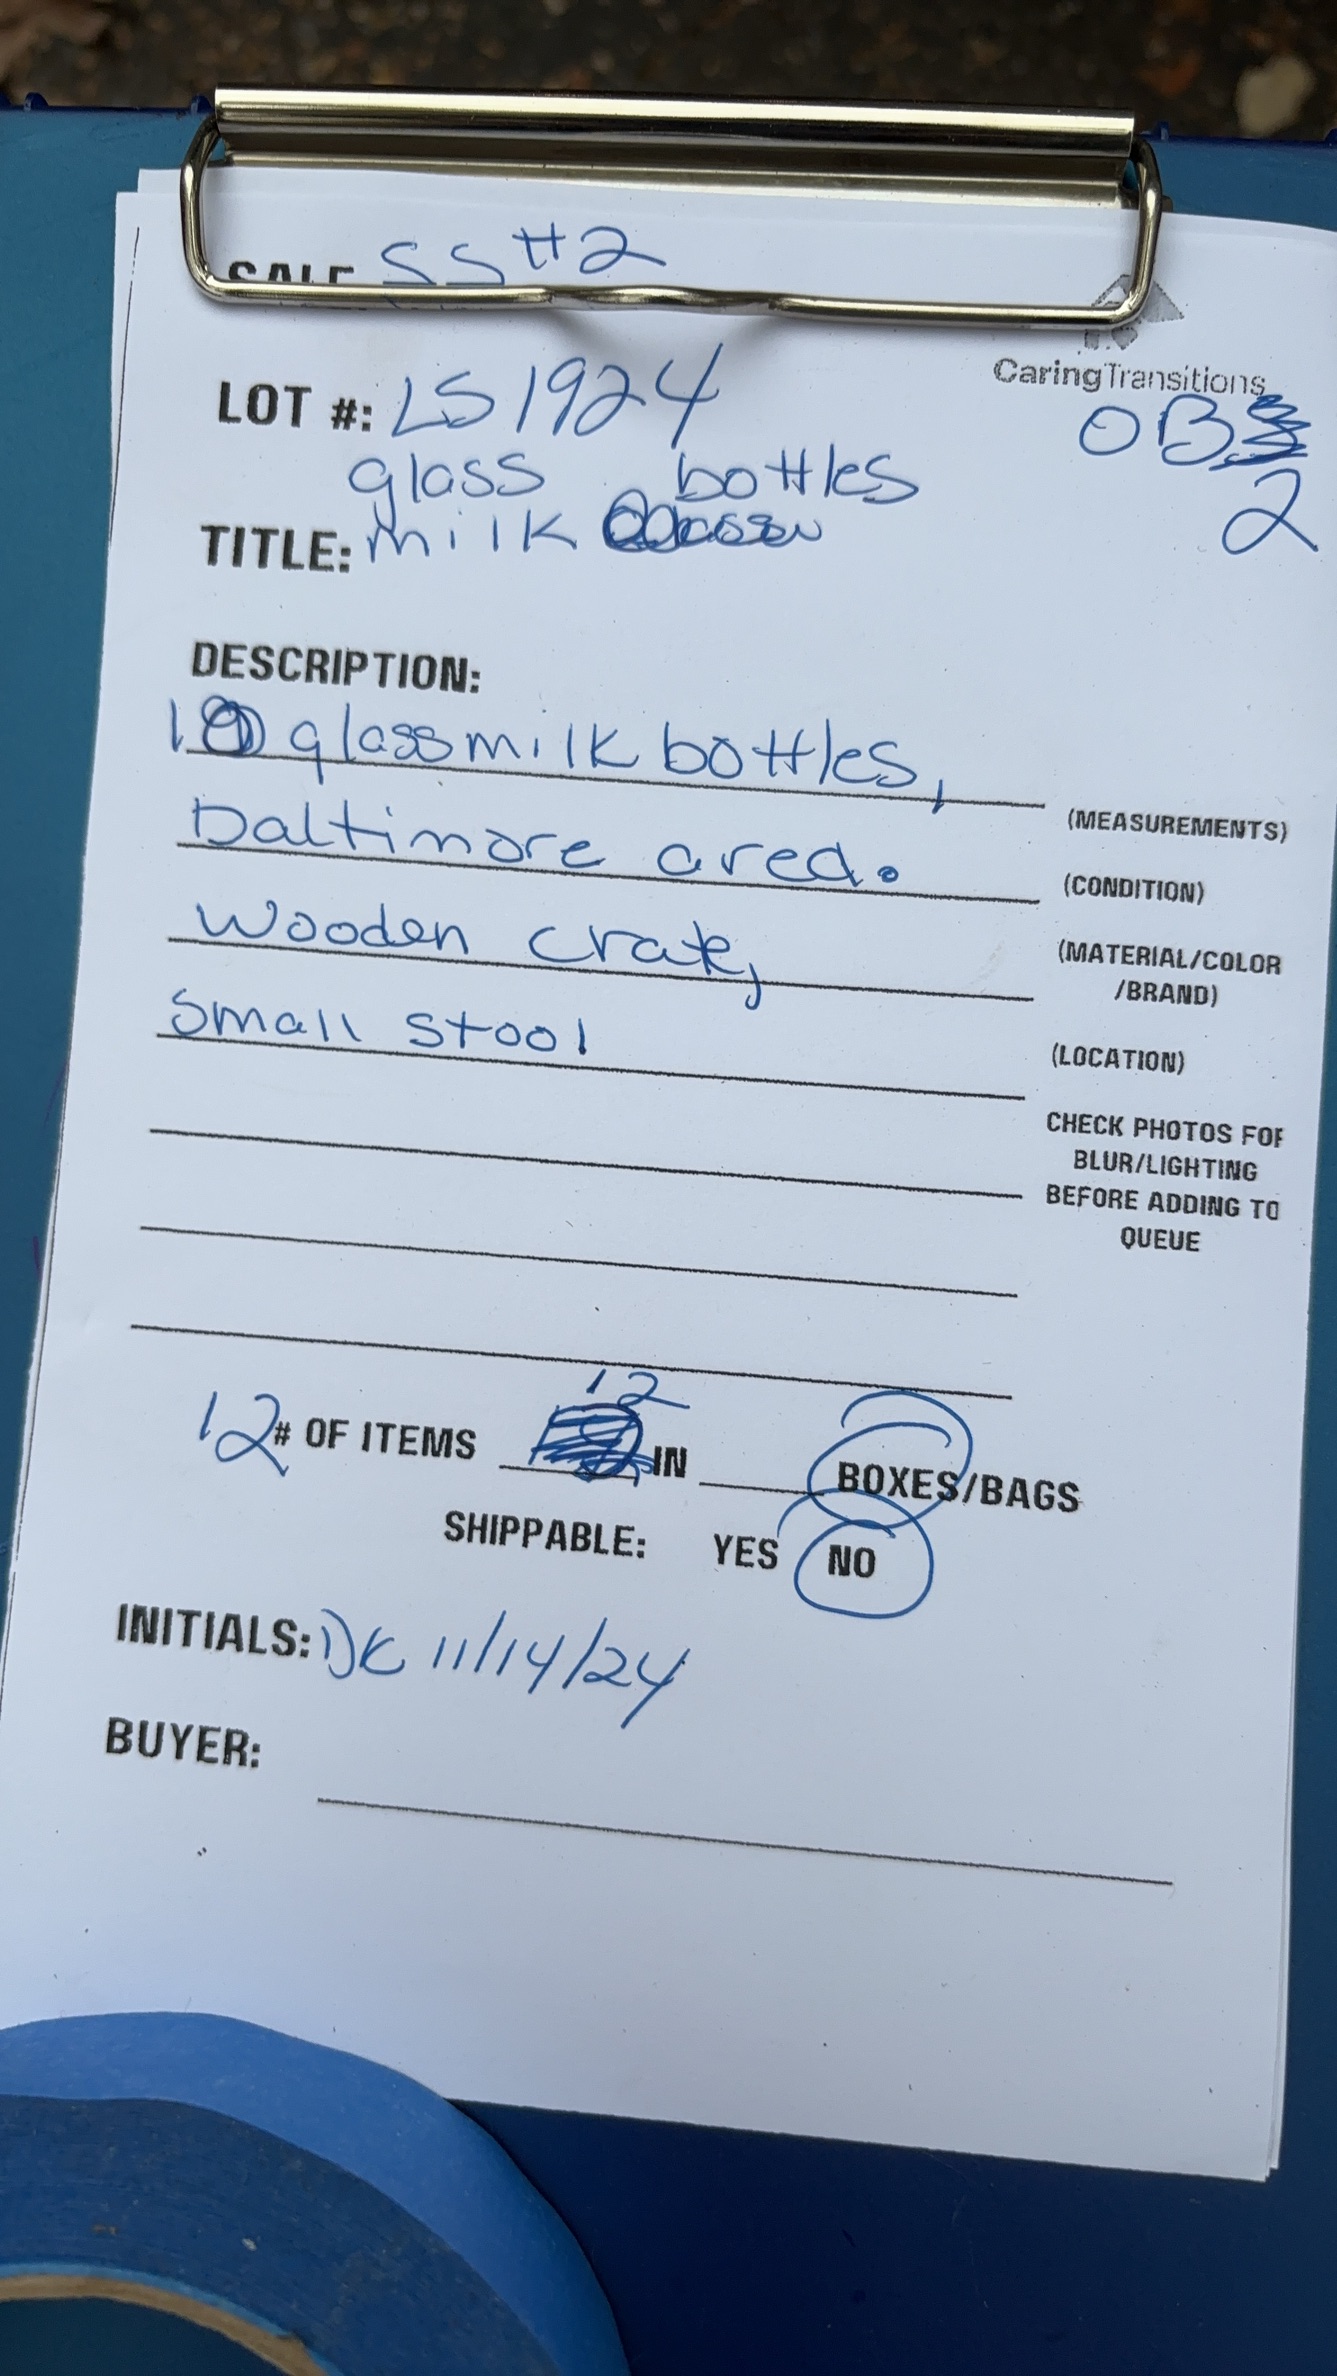 SALE SS #2
CaringTransitions
LOT #: LS1924
OB
2
glass bottles
TITLE: milk
DESCRIPTION:
10 glass milk bottles,
(MEASUREMENTS)
baltimore area.
(CONDITION)
wooden crate,
(MATERIAL/COLOR
/BRAND)
small stool
(LOCATION)
CHECK PHOTOS FOR
BLUR/LIGHTING
BEFORE ADDING TO
QUEUE
12
12 # OF ITEMS IN BOXES/BAGS
SHIPPABLE: YES NO
INITIALS: DK 11/14/24
BUYER: